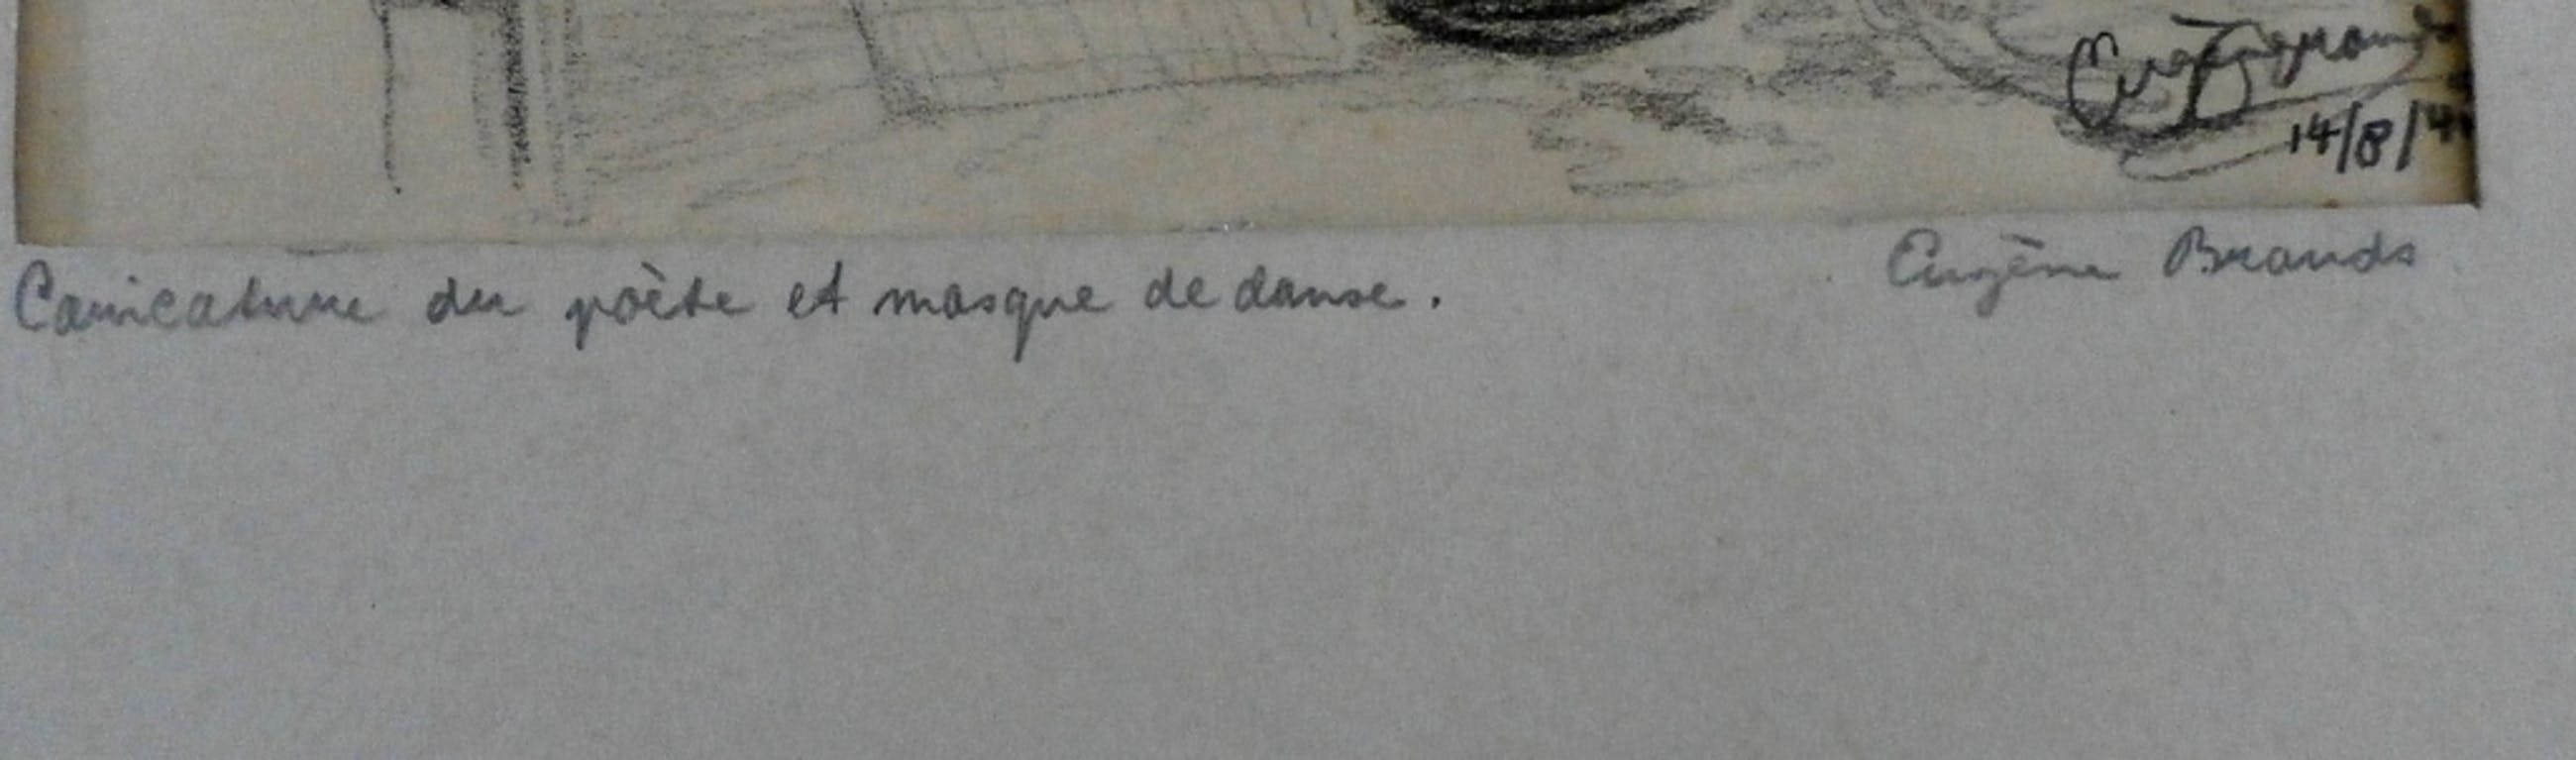 Eug. Brands
14/8/4
Caricature du poète et masque de danse.
Eugène Brands